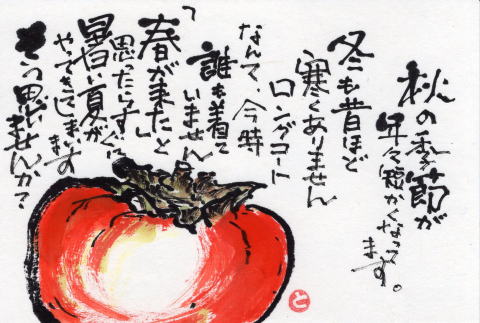 秋の季節が
年々短かくなって
ます。
冬も昔ほど
寒くありません
ロングコート
なんて、今時
誰も着て
いません
「春がきた」と
思ったらすぐに
暑い夏が
やってきてしまいます
そう思いませんか?
と